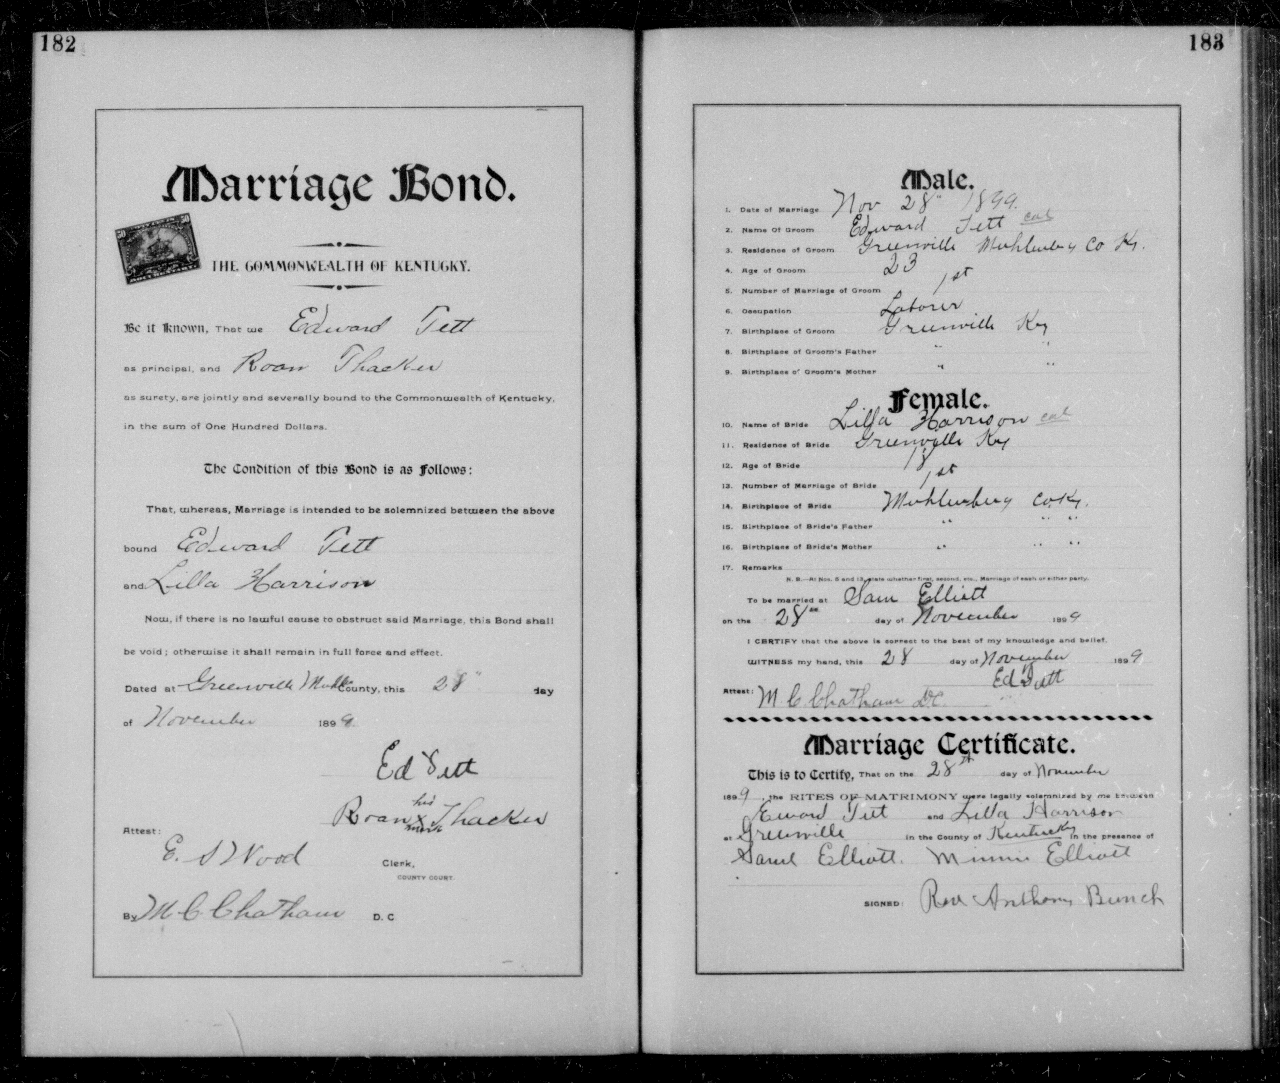 182
Marriage Bond.
50
THE COMMONWEALTH OF KENTUCKY.
Be it Known, That we Edward Tett
as principal, and Roan Thacker
as surety, are jointly and severally bound to the Commonwealth of Kentucky,
in the sum of One Hundred Dollars.
The Condition of this Bond is as Follows:
That, whereas, Marriage is intended to be solemnized between the above
bound Edward Tett
and Lilla Harrison
Now, if there is no lawful cause to obstruct said Marriage, this Bond shall
be void; otherwise it shall remain in full force and effect.
Dated at Greenville Muhl County, this 28" day
of November 1899
Ed Tett
his
Roan X Thacker
mark
Attest:
E. S Wood Clerk,
COUNTY COURT.
By M C Chatham D. C
183
Male.
1. Date of Marriage Nov 28" 1899.
2. Name Of Groom Edward Tett col
3. Residence of Groom Greenville Muhlenberg Co Ky.
4. Age of Groom 23
5. Number of Marriage of Groom 1st
6. Occupation Laborer
7. Birthplace of Groom Greenville Ky
8. Birthplace of Groom's Father " "
9. Birthplace of Groom's Mother " "
Female.
10. Name of Bride Lilla Harrison col
11. Residence of Bride Greenville Ky
12. Age of Bride 18
13. Number of Marriage of Bride 1st
14. Birthplace of Bride Muhlenberg Co Ky.
15. Birthplace of Bride's Father " " "
16. Birthplace of Bride's Mother " " "
17. Remarks
N. B.—At Nos. 5 and 13, state whether first, second, etc., Marriage of each or either party.
To be married at Sam Elliott
on the 28th day of November 1899
I CERTIFY that the above is correct to the best of my knowledge and belief.
WITNESS my hand, this 28 day of November 1899
Ed Tett
Attest: M C. Chatham DC.
Marriage Certificate.
This is to Certify, That on the 28th day of November
1899, the RITES OF MATRIMONY were legally solemnized by me between
Edward Tett and Lilla Harrison
at Greenville in the County of Kentucky in the presence of
Saml Elliott. Minnie Elliott
SIGNED: Rev Anthony Bunch